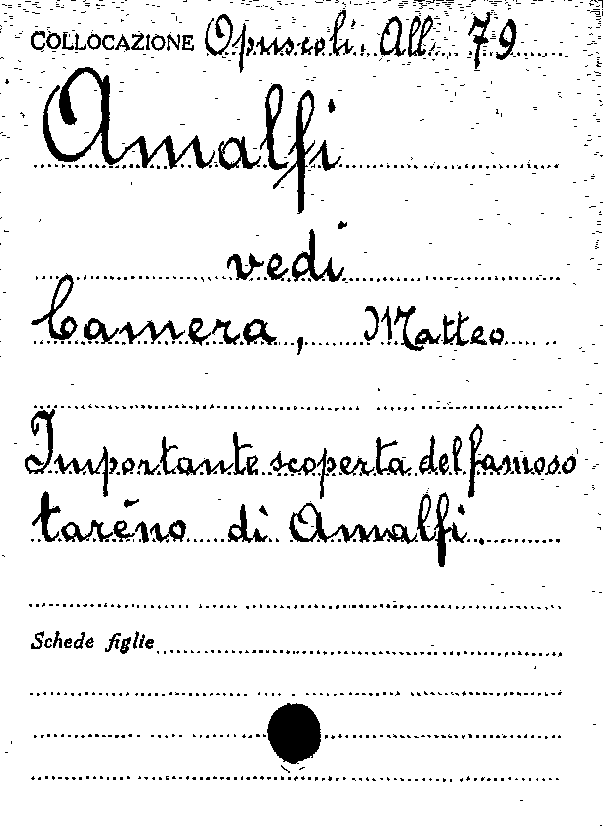 COLLOCAZIONE Opuscoli. All. 79
Amalfi
vedi
Camera, Matteo
Importante scoperta del famoso
tarēno di Amalfi.
Schede figlie